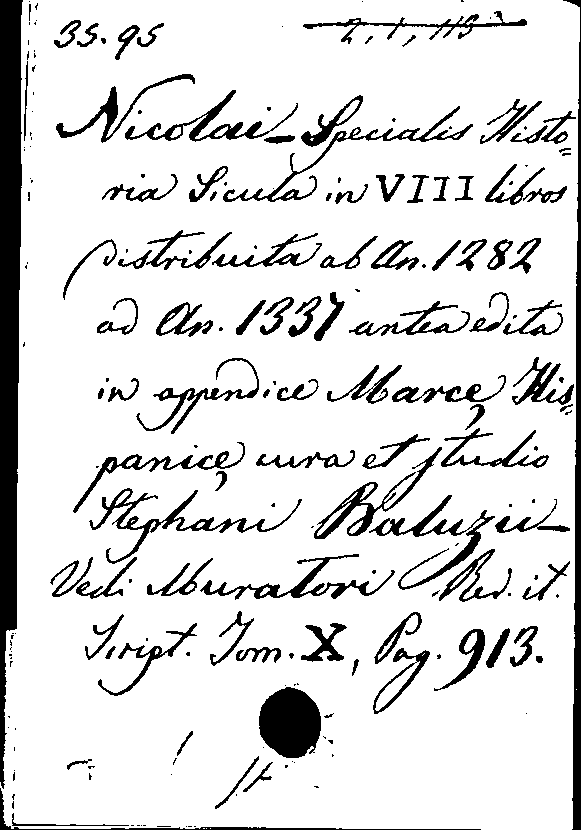 35.95 2, 1, 113
Nicolai - Specialis Histo=
ria Sicula in VIII libros
distribuita ab An. 1282
ad An. 1337 antea edita
in appendice Marcę His=
panicę cura et studio
Stephani Baluzii -
Vedi Muratori Rer. it.
Script. Tom. X, Pag. 913.